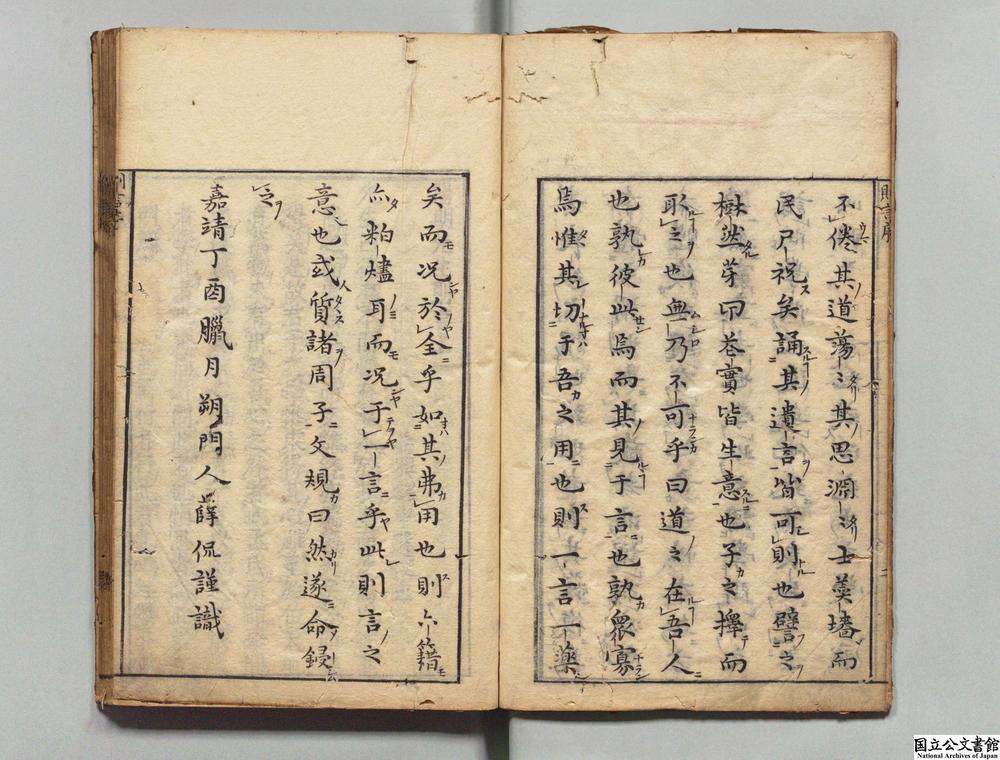 不倦其道蕩〻其思淵〻士羹墻而
民尸祝矣誦其遺言皆可則也譬之
樹然芽甲芲實皆生意也子之擇而
取之也無乃不可乎曰道之在吾人
也孰彼此焉而其見于言也孰眾寡
焉惟其切于吾之用也則一言一藥
矣而况於全乎如其弗用也則六籍
亦粕燼耳而况于一言乎此則言之
意也或質諸周子文規曰然遂命鋟
之
嘉靖丁酉臘月朔門人薛侃謹識
国立公文書館
National Archives of Japan